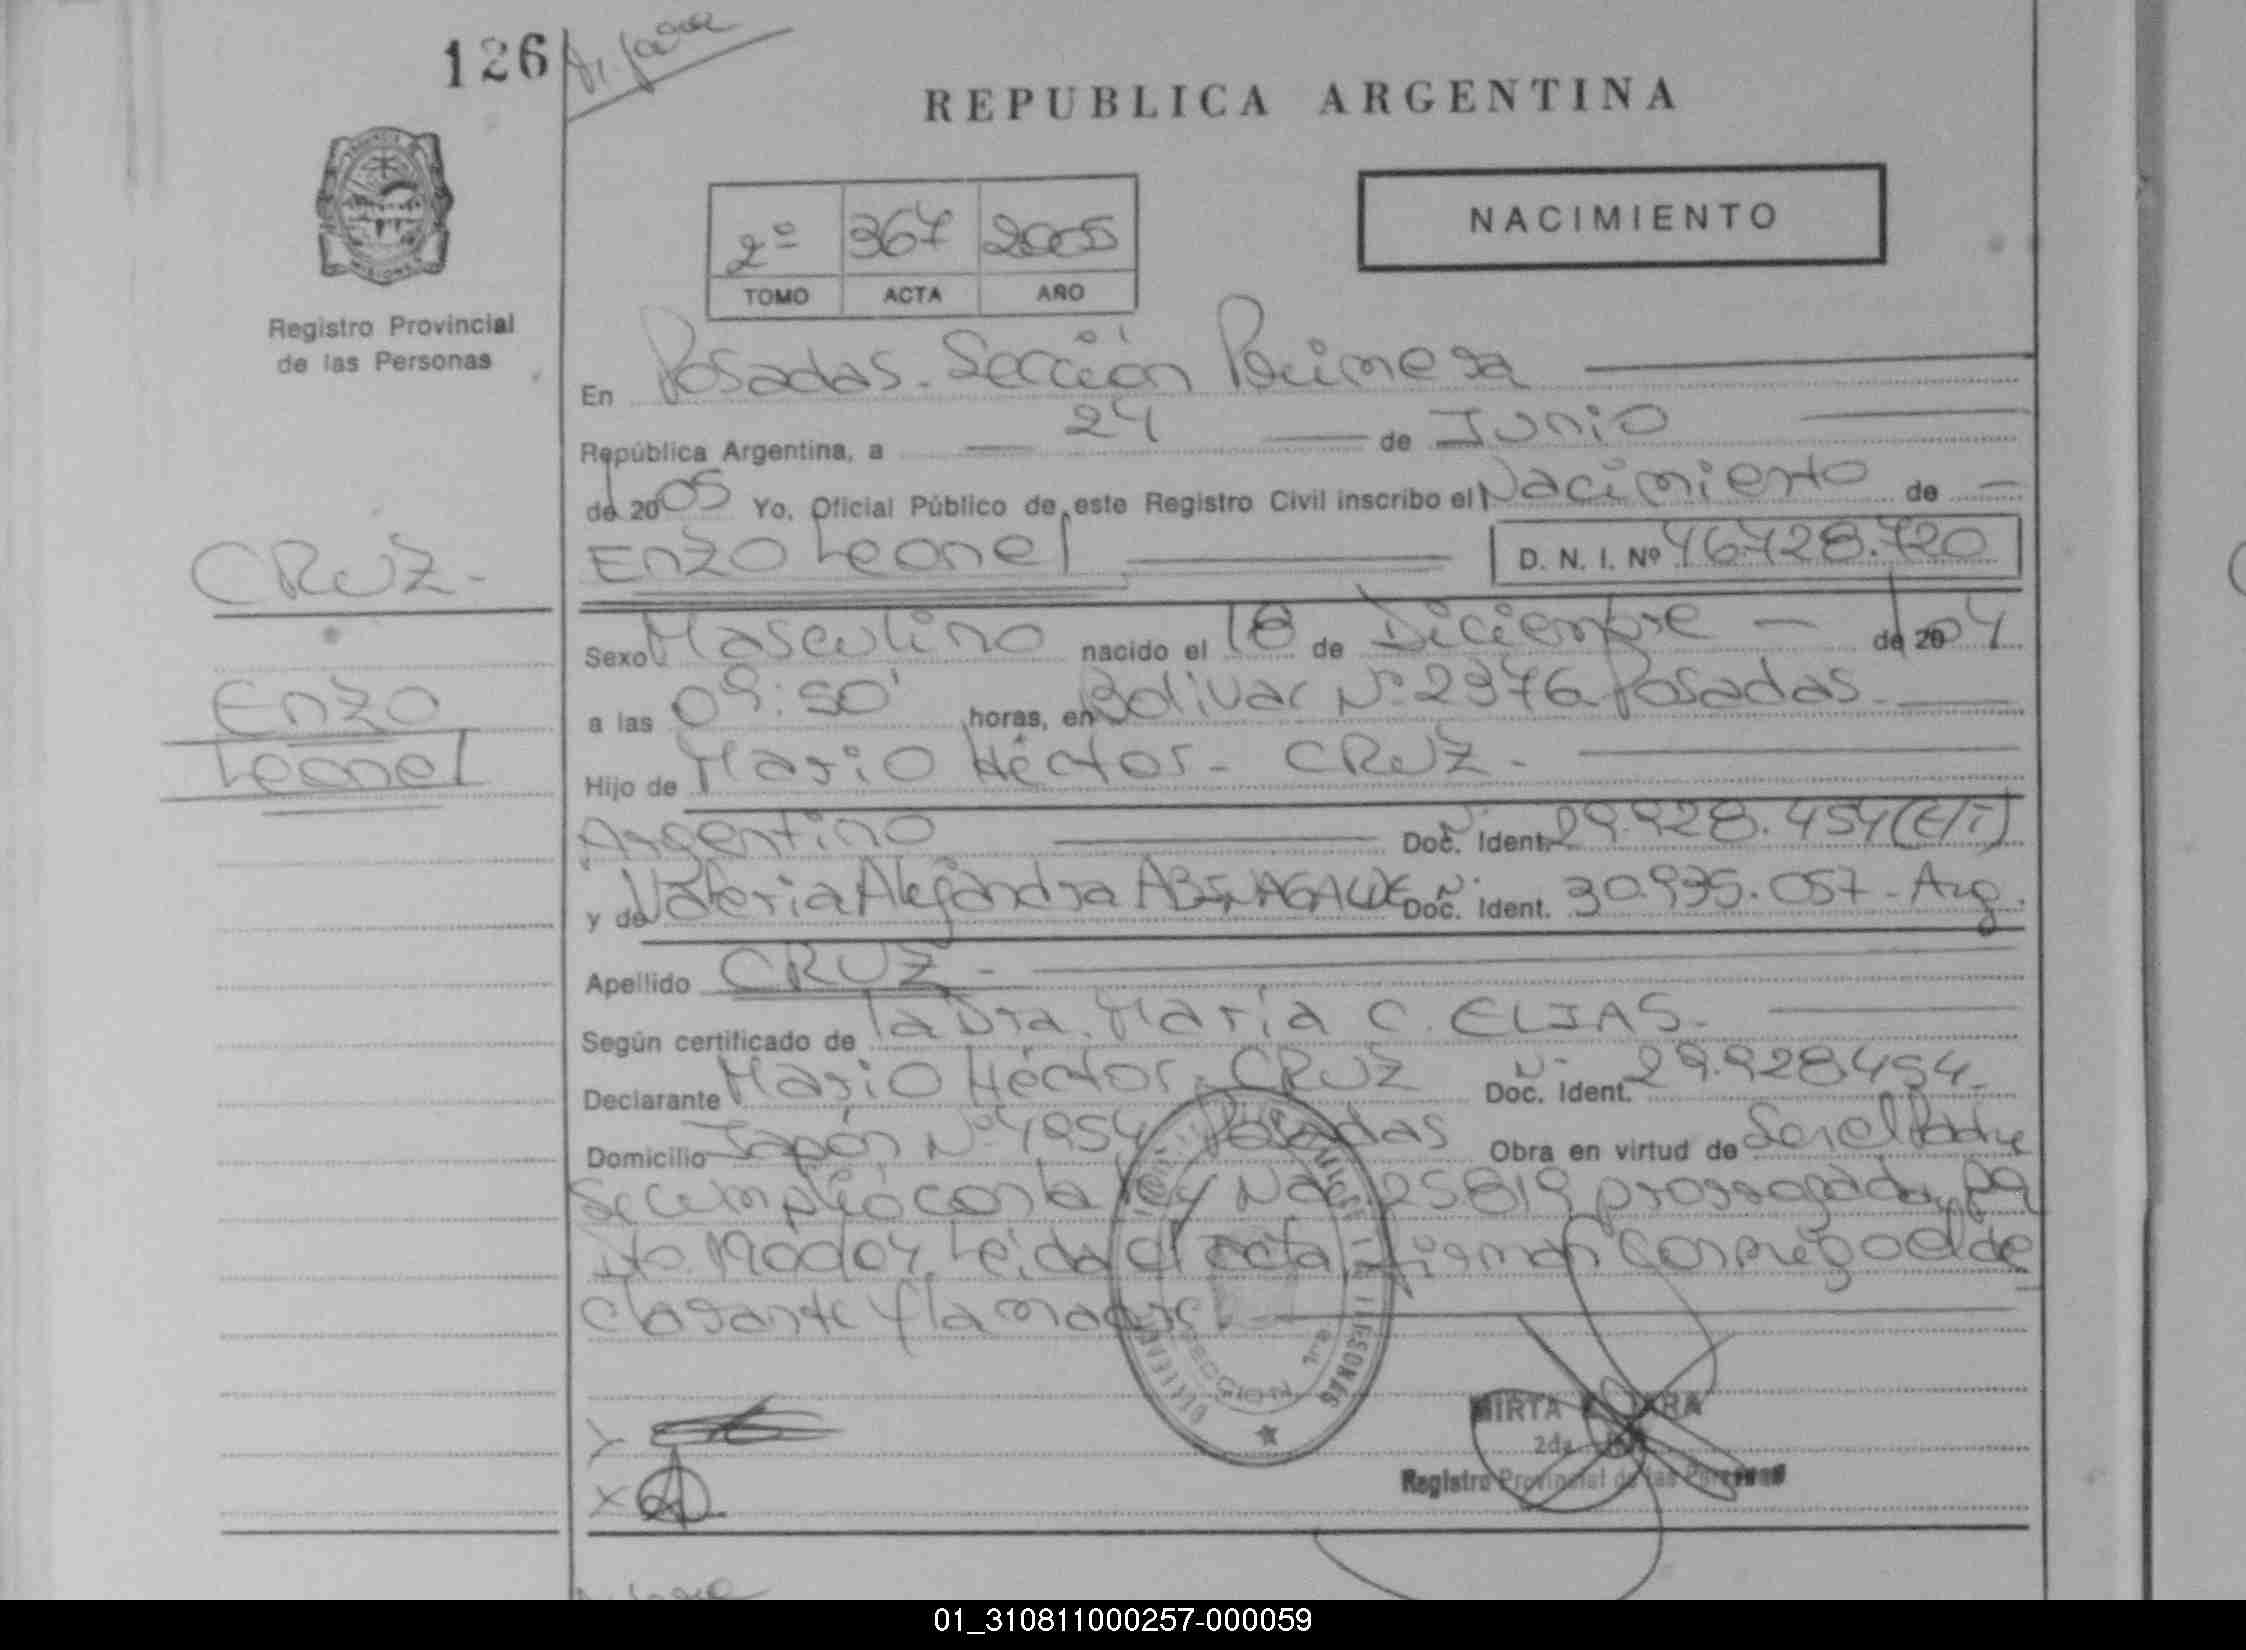 126
REPUBLICA ARGENTINA
NACIMIENTO
2º 367 2005
TOMO ACTA AÑO
PROVINCIA
MISIONES
Registro Provincial
de las Personas
En Posadas. Sección Primera
República Argentina, a 24 de Junio
de 2005 Yo, Oficial Público de este Registro Civil inscribo el Nacimiento de
Enzo Leonel D. N. I. Nº 46.428.420
CRUZ.-
Enzo
Leonel
Sexo Masculino nacido el 18 de Diciembre de 2004
a las 09:50' horas, en Bolivar Nº 2376 Posadas.
Hijo de Mario Héctor - CRUZ.-
Argentino Doc. Ident. Nº 29.928.454 (E/T)
y de Valeria Alejandra Doc. Ident. Nº 30.935.057 - Arg.
Apellido CRUZ.-
Según certificado de la Dra. María C. ELIAS.
Declarante Mario Héctor. CRUZ Doc. Ident. Nº 29.928.454.
Domicilio Japón Nº Posadas Obra en virtud de Ser el Padre
Se cumplió con la ley Nac. 25819 prorrogada por
Leida el acta firman conmigo el de
clarante y la madre.
SECCION 1ra
MIRTA
2da
Registro Provincial de las Personas
01_310811000257-000059